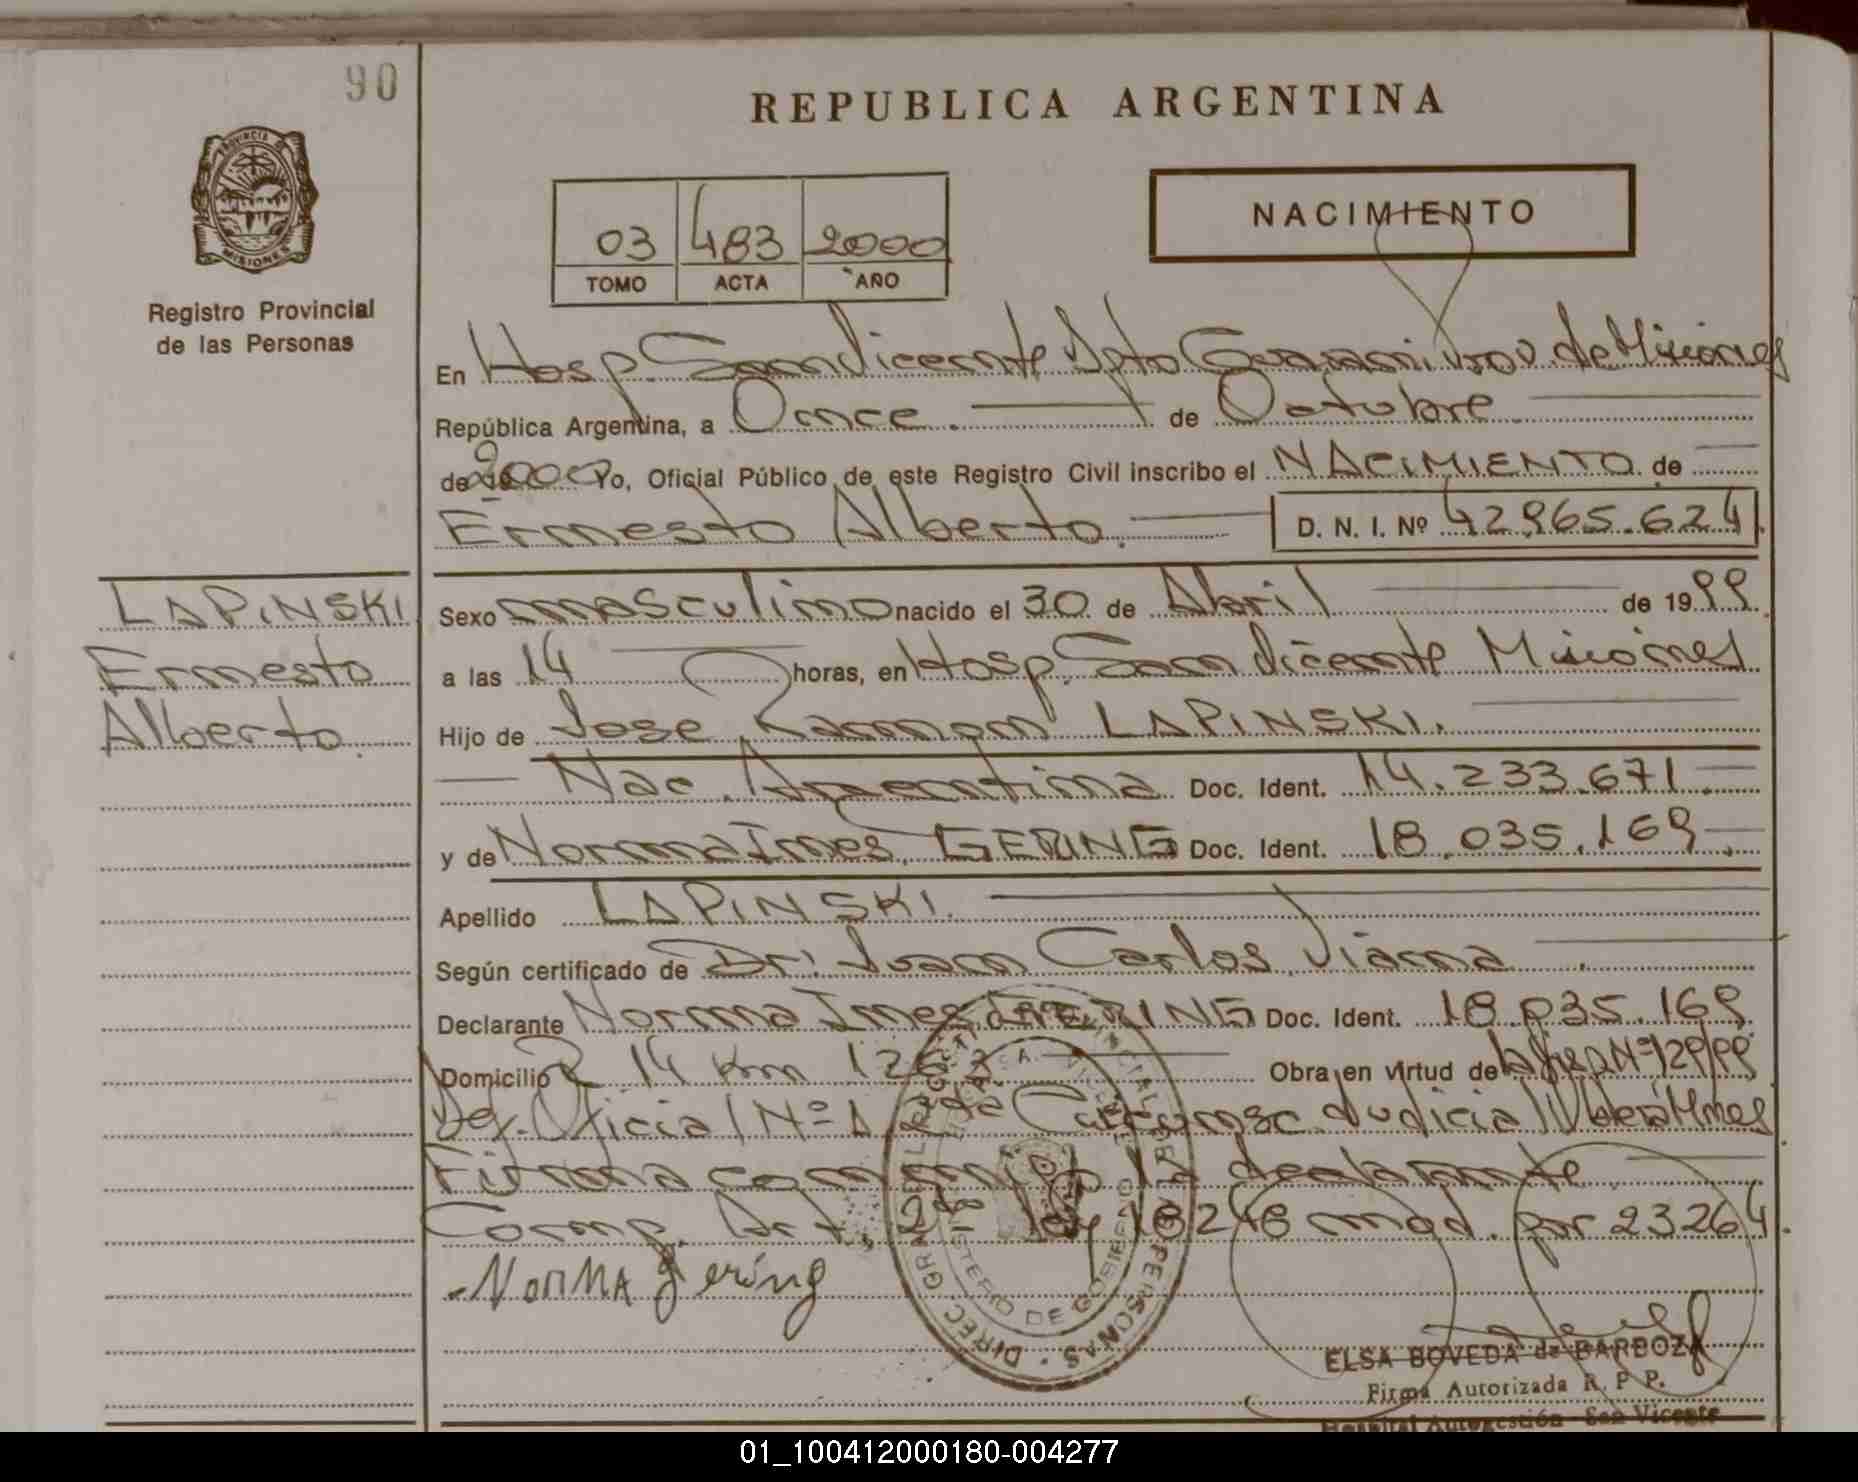 90
REPUBLICA ARGENTINA
PROVINCIA DE
MISIONES
Registro Provincial
de las Personas
03 483 2000
TOMO ACTA AÑO
NACIMIENTO
En Hosp. San Vicente Dpto Guarani Prov. de Misiones
República Argentina, a Once. de Octubre
de 2000 Yo, Oficial Público de este Registro Civil inscribo el NACIMIENTO de
Ernesto Alberto. D. N. I. Nº 42.965.624
LAPINSKI
Ernesto
Alberto.
Sexo masculino nacido el 30 de Abril de 1999
a las 14 horas, en Hosp. San Vicente Misiones
Hijo de Jose Ramon LAPINSKI.
Nac. Argentina Doc. Ident. 14.233.671
y de Norma Ines GERING Doc. Ident. 18.035.169
Apellido LAPINSKI.
Según certificado de Dr. Juan Carlos Viana
Declarante Norma Ines GERING Doc. Ident. 18.035.169
Domicilio R 14 Km 1262 Obra en virtud de Nº 129/99
Def. Oficial Nº 1 2da Circunsc. Judicial Obera Mnes
Firma conmigo la declarante
Corresp. Art. 2do ley 18248 mod. por 23264.
Norma Gering
DIREC GRAL REGISTRO PROVINCIAL DE LAS PERSONAS
MINISTERIO DE GOBIERNO
ELSA BOVEDA de BARBOZA
Firma Autorizada R. P P.
Hospital Autogestión San Vicente
01_100412000180-004277